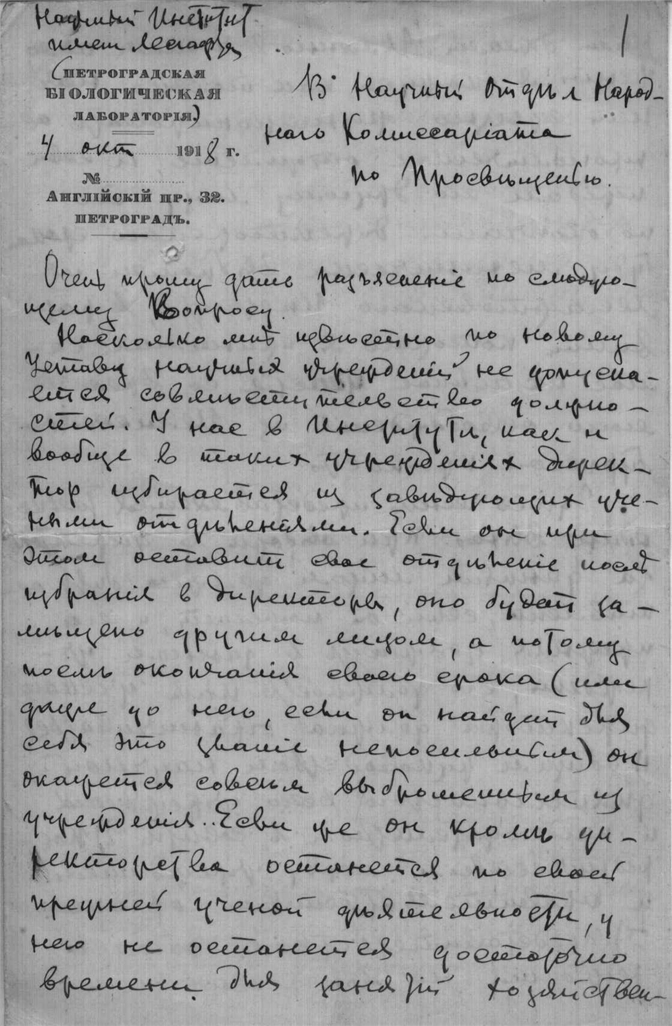 Научный Институт
имени Лесгафта
(ПЕТРОГРАДСКАЯ
БІОЛОГИЧЕСКАЯ
ЛАБОРАТОРІЯ)
4 окт 1918 г.
№
АНГЛІЙСКІЙ ПР., 32.
ПЕТРОГРАДЪ.
1
В Научный отдѣл Народ-
наго Комиссаріата
по Просвѣщенію.
Очень прошу дать разъясненіе по слѣдую-
щему Вопросу.
Насколько мнѣ извѣстно по новому
Уставу научных учрежденій не допуска-
ется совмѣстительство должно-
стей. У нас в Институтѣ, как и
вообще в таких учрежденіях дирек-
тор избирается из завѣдующих уче-
ными отдѣленіями. Если он при
этом оставит свое отдѣленіе послѣ
избранія в директоры, оно будет за-
мѣщено другим лицом, а потому
послѣ окончанія своего срока (или
даже до него, если он найдет для
себя это званіе непосильным) он
окажется совсем выброшенным из
учрежденія. Если же он кромѣ ди-
ректорства останется по своей
прежней ученой дѣятельности, у
него не останется достаточно
времени для занятій хозяйствен-